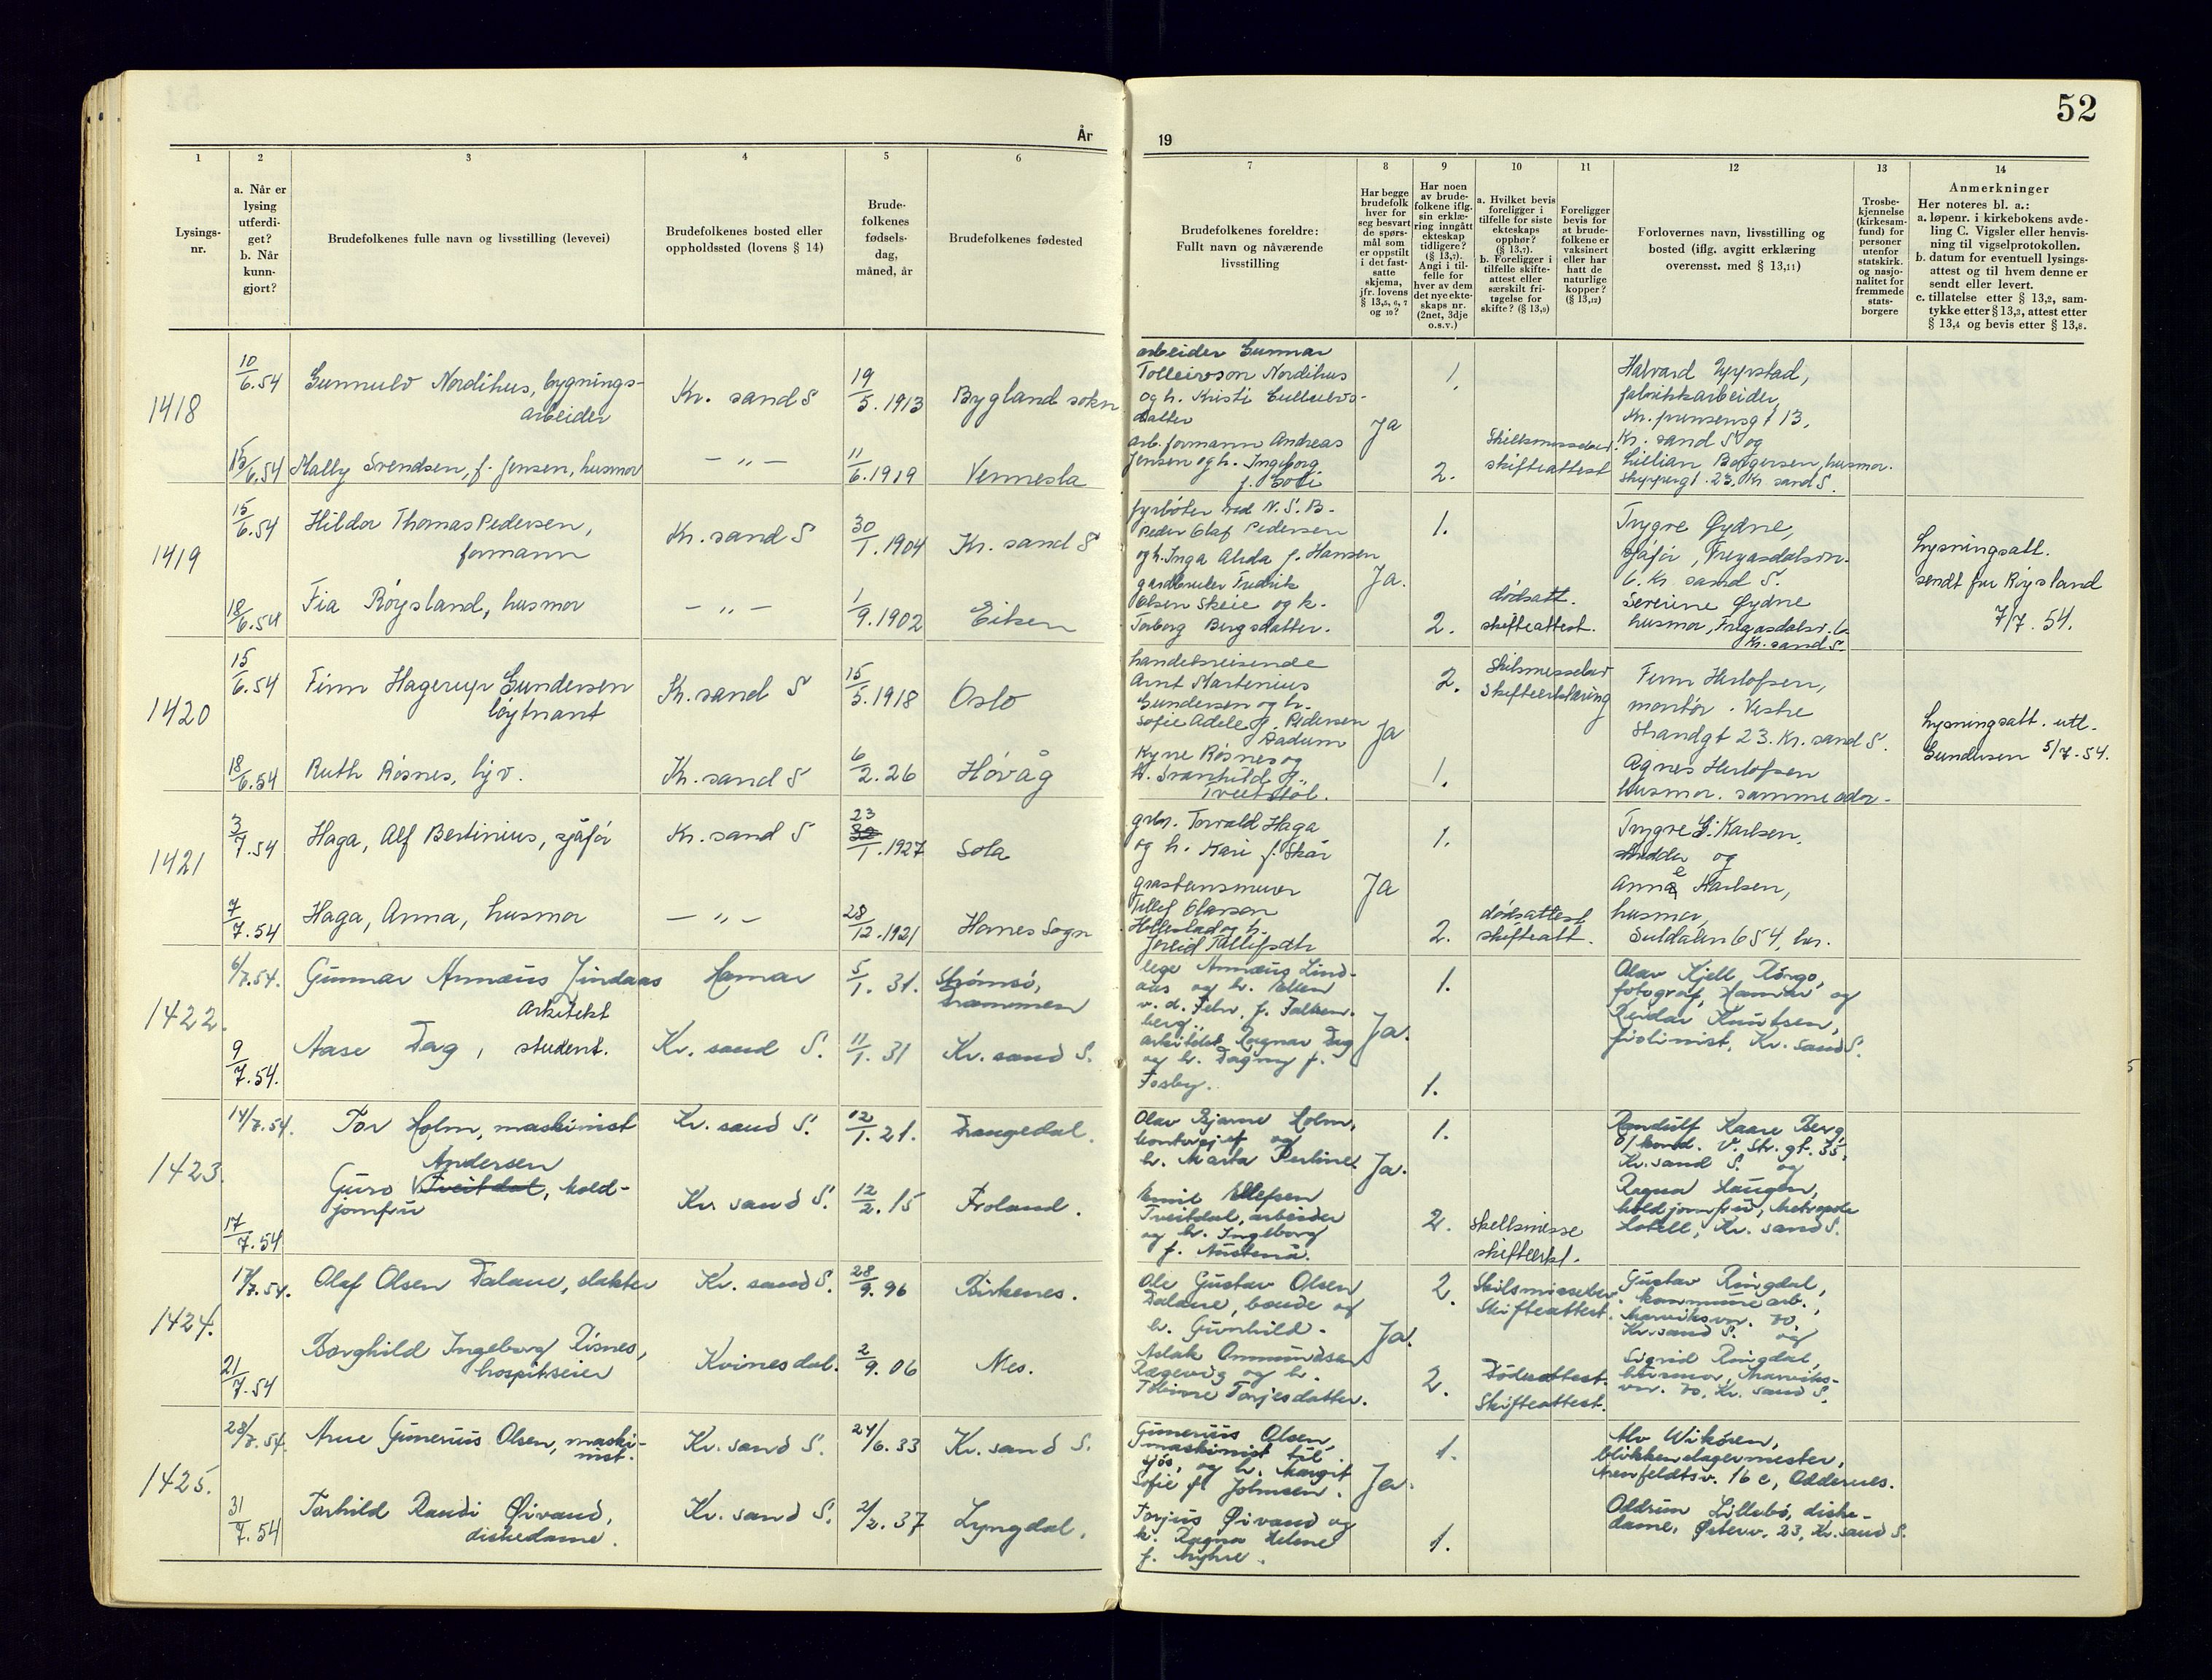 52
År
19
1
2
3
4
5
6
7
8
9
10
11
12
13
14
Lysings-
nr.
a. Når er
lysing
utferdi-
get?
b. Når
kunn-
gjort?
Brudefolkenes fulle navn og livsstilling (levevei)
Brudefolkenes bosted eller
oppholdssted (lovens § 14)
Brude-
folkenes
fødsels-
dag,
måned, år
Brudefolkenes fødested
Brudefolkenes foreldre:
Fullt navn og nåværende
livsstilling
Har begge
brudefolk
hver for
seg besvart
de spørs-
mål som
er oppstilt
i det fast-
satte
skjema,
jfr. lovens
§ 13,5, 6, 7
og 10?
Har noen
av brude-
folkene iflg.
sin erklæ-
ring inngått
ekteskap
tidligere?
(§ 13,7).
Angi i til-
felle for
hver av dem
det nye ekte-
skaps nr.
(2net, 3dje
o.s.v.)
a. Hvilket bevis
foreligger i
tilfelle for siste
ekteskaps
opphør?
(§ 13,7).
b. Foreligger i
tilfelle skifte-
attest eller
særskilt fri-
tagelse for
skifte? (§ 13,9)
Foreligger
bevis for
at brude-
folkene er
vaksinert
eller har
hatt de
naturlige
kopper?
(§ 13,12)
Forlovernes navn, livsstilling og
bosted (iflg. avgitt erklæring
overensst. med § 13,11)
Trosbe-
kjennelse
(kirkesam-
fund) for
personer
utenfor
statskirk.
og nasjo-
nalitet for
fremmede
stats-
borgere
Anmerkninger
Her noteres bl. a.:
a. løpenr. i kirkebokens avde-
ling C. Vigsler eller henvis-
ning til vigselprotokollen.
b. datum for eventuell lysings-
attest og til hvem denne er
sendt eller levert.
c. tillatelse etter § 13,2, sam-
tykke etter § 13,3, attest etter
§ 13,4 og bevis etter § 13,8.
1418
10/6.54
Gunnulv Nordihus, bygnings-
arbeider
Kr. sand S
19/5.1913
Bygland sokn
arbeider Gunnar
Tolleivson Nordihus
og h. Kristi
datter
Ja
1.
Halvard
fabrikkarbeider,
Kr. prinsensgt 13,
Kr. sand S og
15/6.54
Mally Svendsen, f. Jensen, husmor
— „ —
11/6.1919
Vennesla
arb. formann Andreas
Jensen og h. Ingeborg
2.
skifteattest
Lillian Borgersen, husmor.
Skippergt. 23, Kr. sand S.
1419
15/6.54
Hildor Thomas Pedersen,
formann
Kr. sand S
30/1.1904
Kr. sand S
fyrbøter ved N.S.B.
Peder Olaf Pedersen
og h. Inga Alida f. Hansen
Ja.
1.
Trygve Øydne,
sjåfør,
6. Kr. sand S.
Lysningsatt.
sendt fru Røysland
7/7. 54.
18/6.54
Fia Røysland, husmor
— „ —
1/9.1902
Eiken
gardbruker Fredrik
Olsen Skeie og h.
Torborg Bergsdatter.
2.
dødsatt.
skifteattest.
Severine Øydne
husmor,
Kr. sand S.
1420
15/6.54
Finn Hagerup Gundersen
løytnant
Kr. sand S
15/5.1918
Oslo
handelsreisende
Arnt Martinius
Gundersen og h.
Sofie Adele f. Pedersen
Ja
2.
Skilsmissebev
Skifteerklæring
Finn Herlofsen,
montør. Vestre
Strandgt 23. Kr. sand S.
Lysningsatt. utl.
Gundersen 5/7-54.
18/6.54
Ruth Røsnes, hjv.
Kr. sand S
6/2.26
Høvåg
Kyrre Røsnes og
h. Svanhild f.
Tveitstøl.
1.
Agnes Herlofsen
husmor. samme adr.
1421
3/7.54
Haga, Alf Bertinius, sjåfør
Kr. sand S
23/1.1927
Sola
grbr. Torvald Haga
og h. Mari f. Skår
Ja
1.
Trygve G. Karlsen,
og
7/7.54
Haga, Anna, husmor
— „ —
28/12.1921
Hornes Sogn
gråsteinsmurer
Tellef Olavson
2.
dødsattest
skifteatt.
Karlsen,
husmor,
Suldalen 654, her.
1422.
6/7.54.
Gunnar Annæus Lindaas
Arkitekt
Hamar
5/1. 31.
Strømsø,
Drammen
lege Annæus Lind-
aas og h. Ellen
v. d. Fehr, f. Falken-
berg.
Ja.
1.
Olav Kjell Rongo,
fotograf, Hamar og
Reidar Knutsen,
fiolinist, Kr. sand S.
9/7.54.
Aase Dag, student.
Kr. sand S.
11/1. 31
Kr. sand S.
arkitekt Ragnar Dag
og h. Dagny f.
Fosby.
1.
1423.
14/7.54.
Tor Holm, maskinist
Kr. sand S.
12/1. 21.
Drangedal.
Olav Bjarne Holm,
kontorsjef og
h. Marta Perline.
Ja.
1.
Randulf Kaare Berg,
V. Str. gt. 35,
Kr. sand S. og
17/7.54
Andersen
Guro Tveitdal, kold-
jomfru
Kr. sand S.
12/2. 15
Froland.
Emil Ellefsen
Tveitdal, arbeider
og h. Ingeborg
f. Austenå.
2.
skilsmisse
skifteerkl.
Ragna Haugen,
koldjomfru, Metropole
Hotell, Kr. sand S.
1424.
17/7.54.
Olaf Olsen Dalane, slakter
Kr. sand S.
28/9. 96
Birkenes.
Ole Gustav Olsen
Dalane, bonde og
h. Gunhild.
Ja.
2.
Skilsmissebev.
Skifteattest.
Gustav Ringdal,
kommunearb.,
Marviksvn. 70,
Kr. sand S. og
21/7.54
Borghild Ingeborg Risnes,
hospitseier
Kvinesdal.
2/9. 06
Nes.
Aslak Ommundsen
Rægevig og h.
Torjesdatter.
2.
Dødsattest.
Skifteattest.
Sigrid Ringdal,
husmor, Marviks-
vn. 70, Kr. sand S.
1425.
28/7.54.
Arne Gunerius Olsen, maski-
nist.
Kr. sand S.
24/6.33
Kr. sand S.
Gunerius Olsen,
maskinist til
sjøs, og h. Margit
Sofie f. Johnsen.
Ja.
1.
Alv Wikøren,
blikkenslagermester,
16 c, Oddernes.
31/7.54
Torhild Randi Øivand,
diskedame.
Kr. sand S.
2/2. 37
Lyngdal.
Torjus Øivand og
h. Ragna Helene
f. Myhre.
1.
Oddrun Lillebø, diske-
dame, Østerv. 23, Kr. sand S.